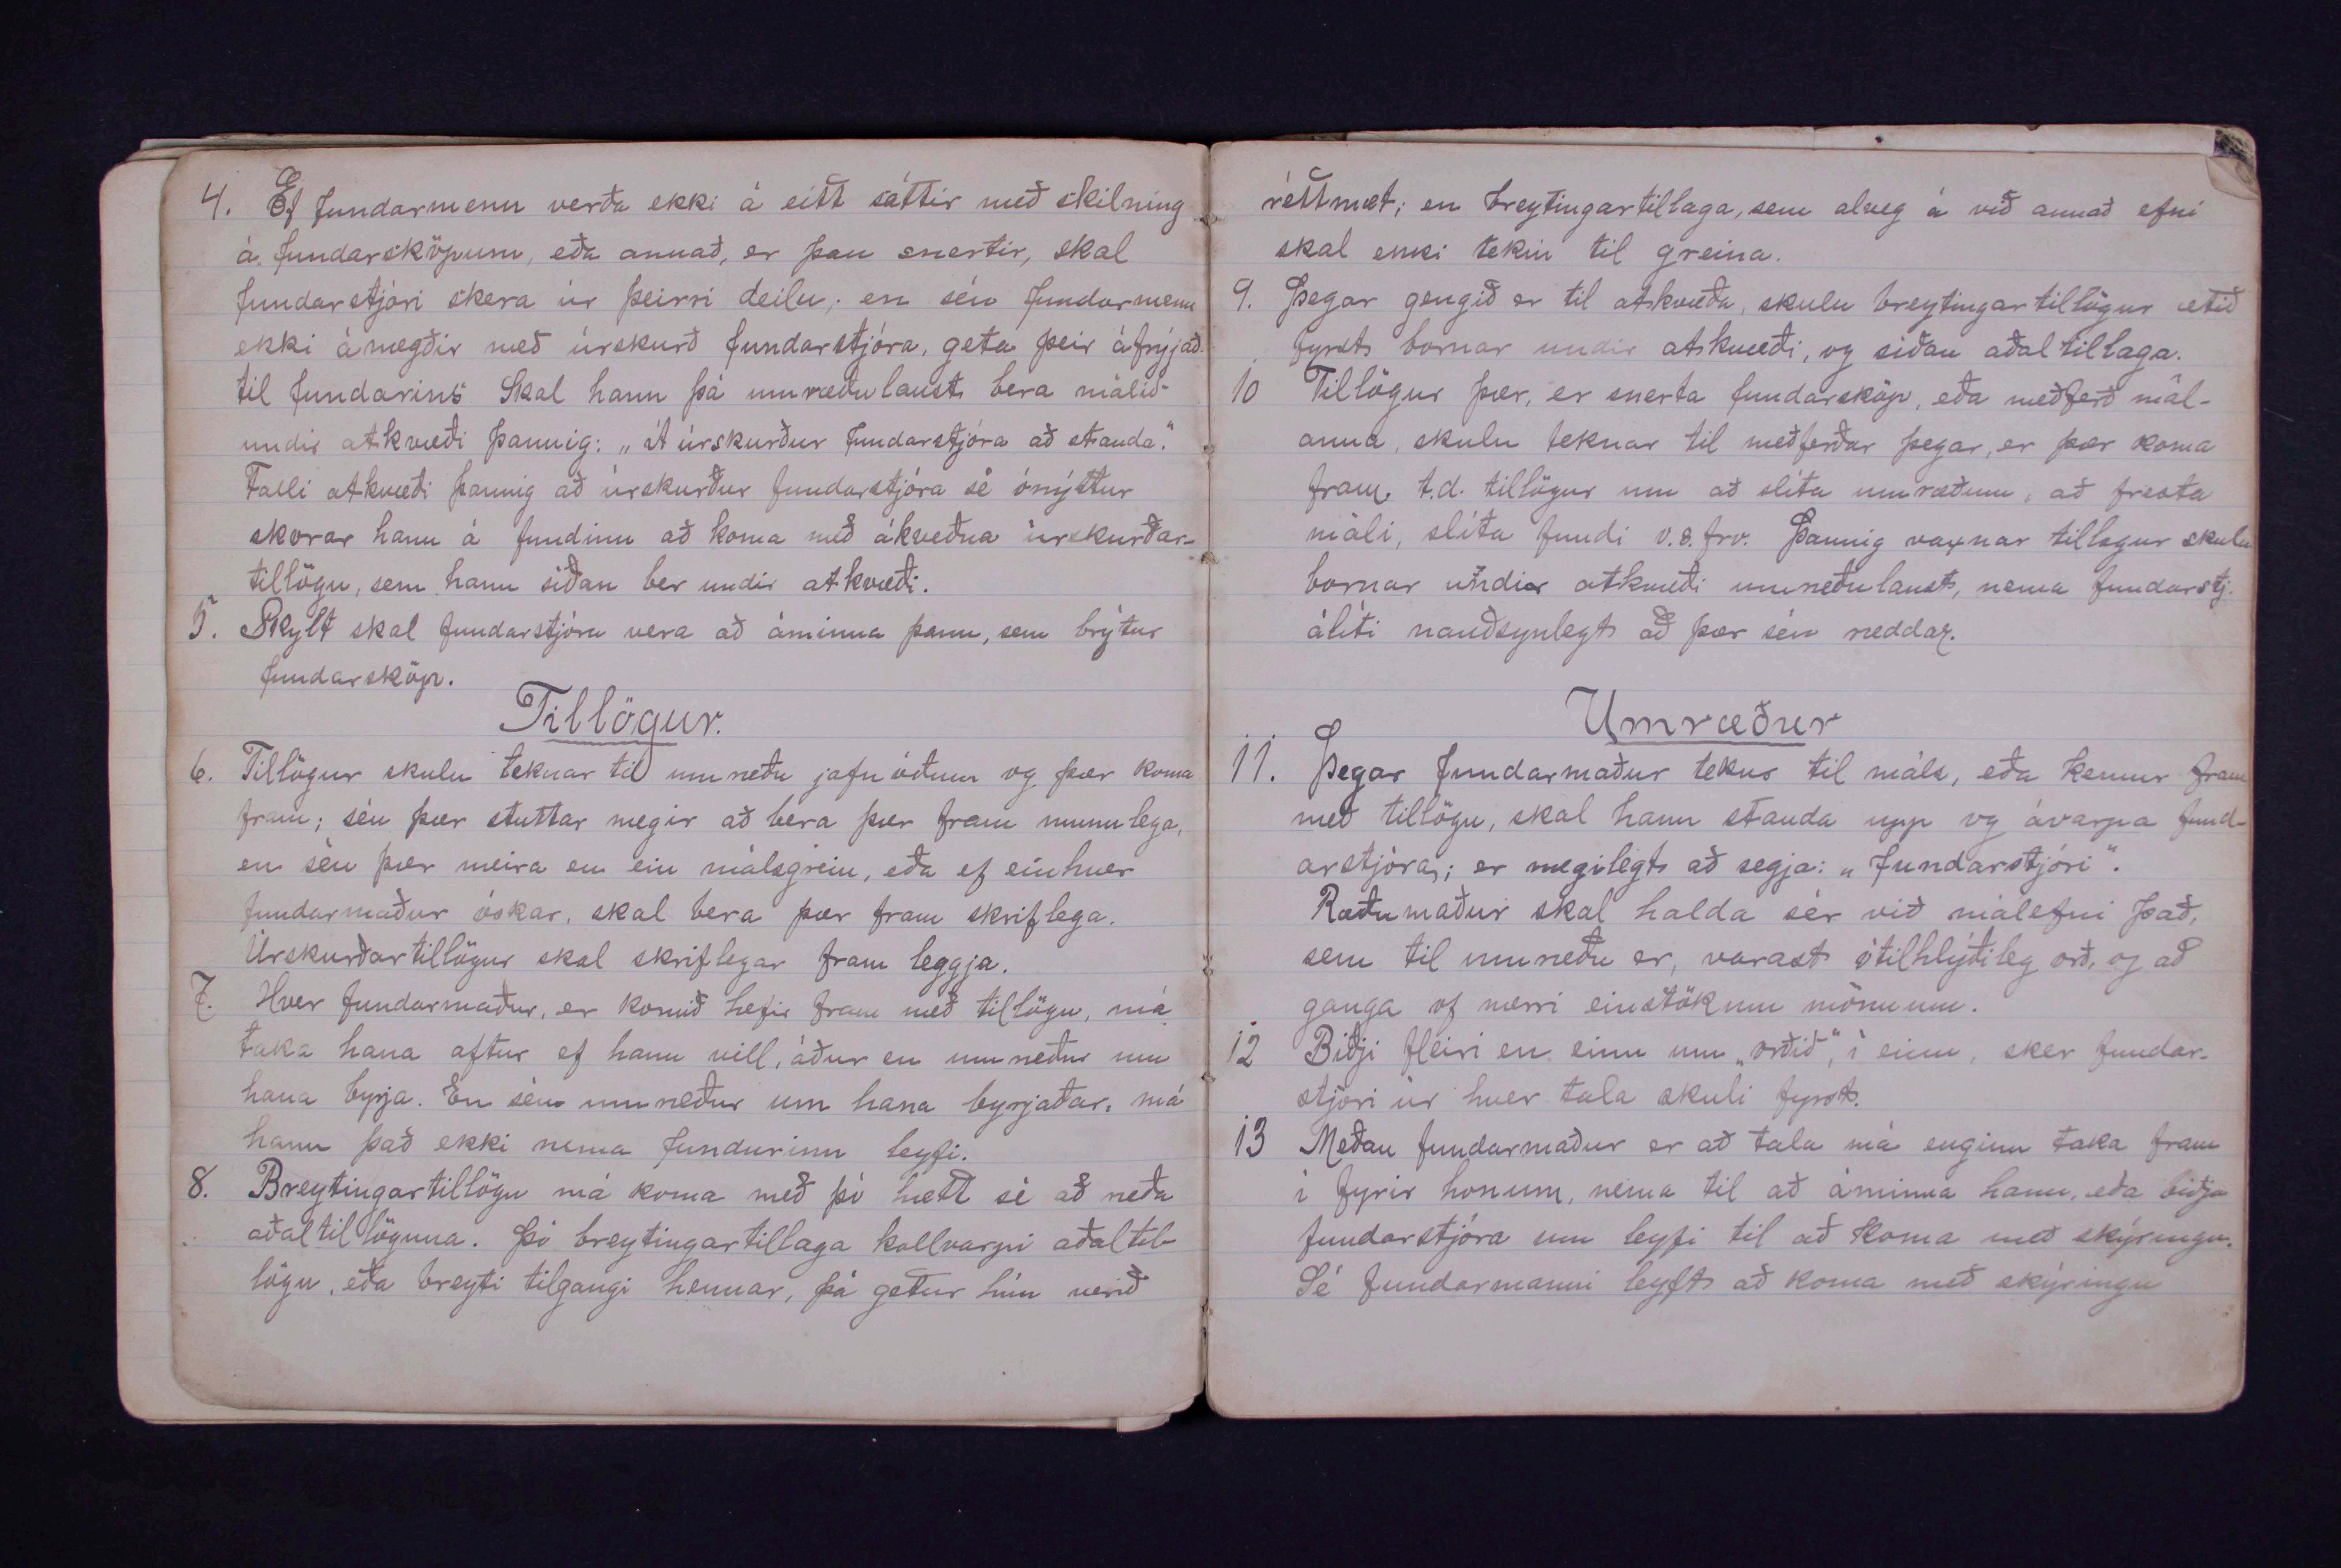 4. Ef fundarmenn verða ekki á eitt sáttir með skilning
á fundarsköpum, eða annað, er þau snertir, skal
fundarstjóri skera úr þeirri deilu; en séu fundarmenn
ekki ánægðir með úrskurð fundarstjóra, geta þeir áfrýjað
til fundarins. Skal hann þá umræðulaust bera málið
undir atkvæði þannig: „Á úrskurður fundarstjóra að standa".
Falli atkvæði þannig að úrskurður fundarstjóra sé ónýttur
skorar hann á fundinn að koma með ákveðna úrskurðar-
tillögu, sem hann síðan ber undir atkvæði.
5. Skylt skal fundarstjóra vera að áminna þann, sem brýtur
fundarsköp.
Tillögur.
6. Tillögur skulu teknar til umræðu jafnóðum og þær koma
fram; séu þær stuttar nægir að bera þær fram munnlega,
en séu þær meira en ein málsgrein, eða ef einhver
fundarmaður óskar, skal bera þær fram skriflega.
Úrskurðartillögur skal skriflegar fram leggja.
7. Hver fundarmaður, er komið hefir fram með tillögu, má
taka hana aftur ef hann vill, áður en umræður um
hana byrja. En séu umræður um hana byrjaðar, má
hann það ekki nema fundurinn leyfi.
8. Breytingartillögu má koma með þó hætt sé að ræða
aðaltillöguna. Þó breytingartillaga kollvarpi aðaltil-
lögu, eða breyti tilgangi hennar, þá getur hún verið
réttmæt; en breytingartillaga, sem alveg á við annað efni
skal ekki tekin til greina.
9. Þegar gengið er til atkvæða, skulu breytingartillögur ætið
fyrst bornar undir atkvæði, og síðan aðaltillaga.
10 Tillögur þær, er snerta fundarsköp, eða meðferð mál-
anna, skulu teknar til meðferðar þegar, er þær koma
fram, t.d. tillögur um að slíta umræðum, að fresta
máli, slíta fundi o.s.frv. Þannig vaxnar tillögur skulu
bornar undir atkvæði umræðulaust, nema fundarstj.
álíti nauðsynlegt að þær séu ræddar.
Umræður
11. Þegar fundarmaður tekur til máls, eða kemur fram
með tillögu, skal hann standa upp og ávarpa fund-
arstjóra; er nægilegt að segja: „Fundarstjóri".
Ræðumaður skal halda sér við málefni það,
sem til umræðu er, varast ótilhlýðileg orð, og að
ganga of nærri einstökum mönnum.
12 Biðji fleiri en einn um „orðið", í einu, sker fundar-
stjóri úr hver tala skuli fyrst.
13 Meðan fundarmaður er að tala má enginn taka fram
í fyrir honum, nema til að áminna hann, eða biðja
fundarstjóra um leyfi til að koma með skýringu.
Sé fundarmanni leyft að koma með skýringu